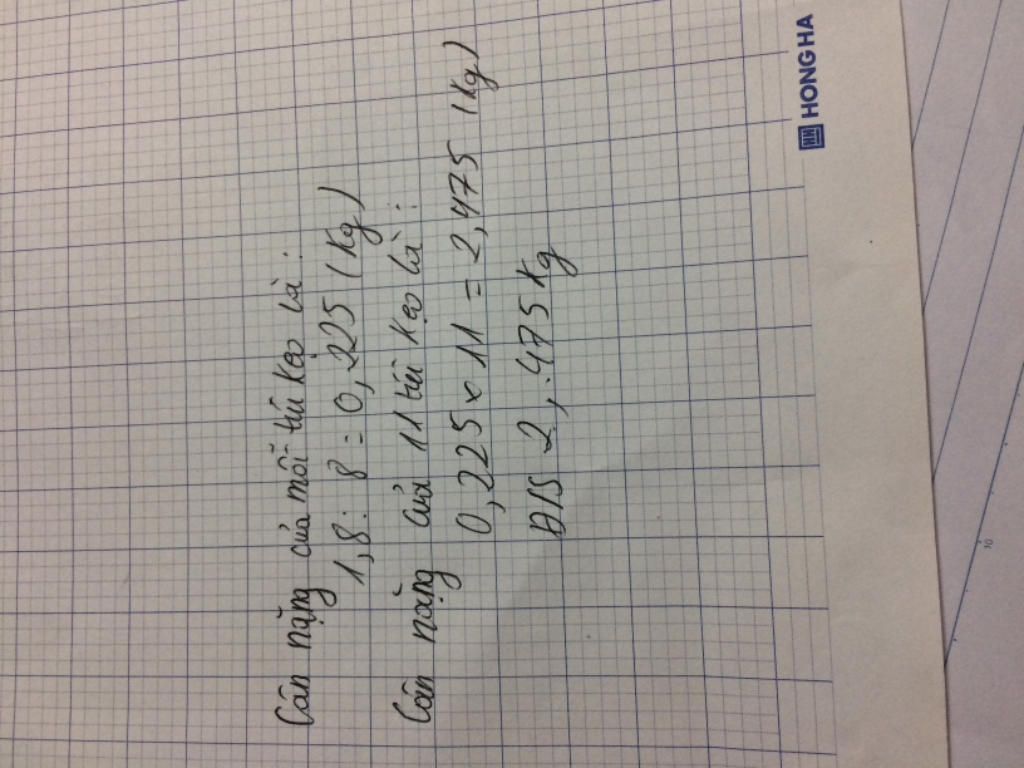 Cân nặng của mỗi túi kẹo là :
1,8 : 8 = 0,225 (kg)
Cân nặng của 11 túi kẹo là :
0,225 x 11 = 2,475 (kg)
Đ/S 2,475 kg
HONG HA
10